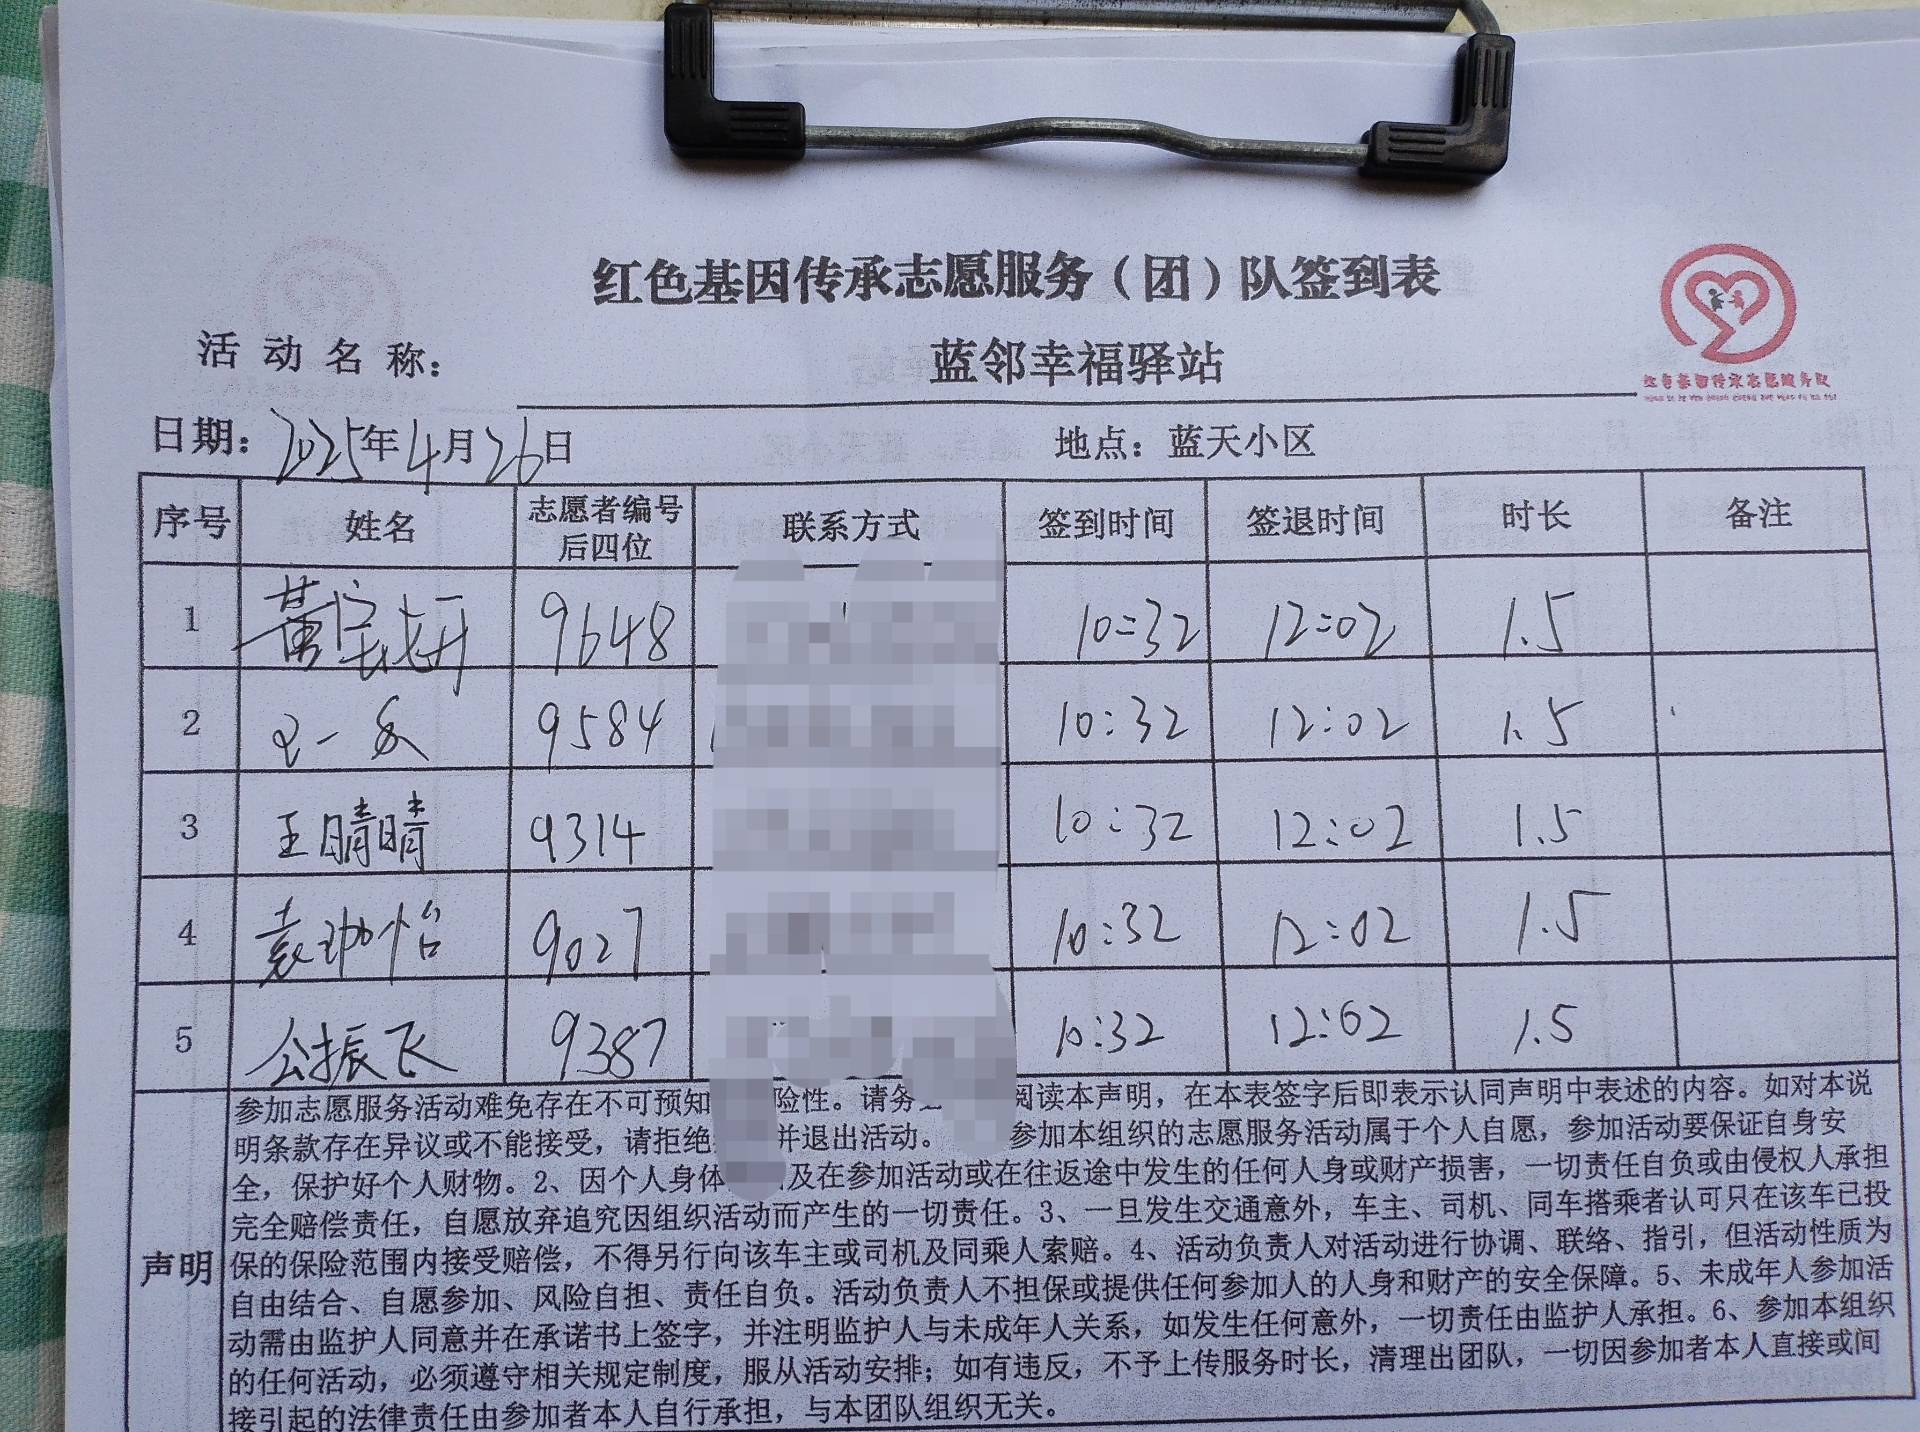 红色基因传承志愿服务（团）队签到表
活动名称： 蓝邻幸福驿站
红色基因传承志愿服务队
日期：2025年4月26日 地点：蓝天小区
序号 姓名 志愿者编号后四位 联系方式 签到时间 签退时间 时长 备注
1 黄 9648 10:32 12:02 1.5
2 一 9584 10:32 12:02 1.5
3 王晴晴 9314 10:32 12:02 1.5
4 袁珈怡 9027 10:32 12:02 1.5
5 公振飞 9387 10:32 12:02 1.5
声明
参加志愿服务活动难免存在不可预知 险性。请务 阅读本声明，在本表签字后即表示认同声明中表述的内容。如对本说
明条款存在异议或不能接受，请拒绝 并退出活动。 参加本组织的志愿服务活动属于个人自愿，参加活动要保证自身安
全，保护好个人财物。2、因个人身体 及在参加活动或在往返途中发生的任何人身或财产损害，一切责任自负或由侵权人承担
完全赔偿责任，自愿放弃追究因组织活动而产生的一切责任。3、一旦发生交通意外，车主、司机、同车搭乘者认可只在该车已投
保的保险范围内接受赔偿，不得另行向该车主或司机及同乘人索赔。4、活动负责人对活动进行协调、联络、指引，但活动性质为
自由结合、自愿参加、风险自担、责任自负。活动负责人不担保或提供任何参加人的人身和财产的安全保障。5、未成年人参加活
动需由监护人同意并在承诺书上签字，并注明监护人与未成年人关系，如发生任何意外，一切责任由监护人承担。6、参加本组织
的任何活动，必须遵守相关规定制度，服从活动安排；如有违反，不予上传服务时长，清理出团队，一切因参加者本人直接或间
接引起的法律责任由参加者本人自行承担，与本团队组织无关。